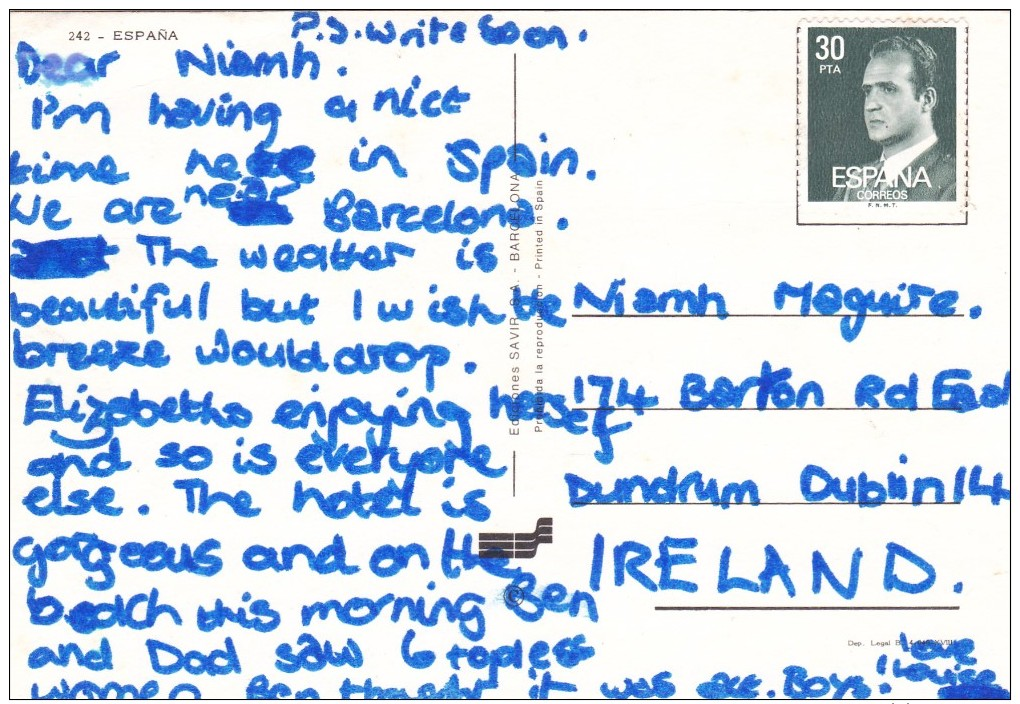 242 - ESPAÑA
P.S. Write Soon.
Dear Niamh.
I'm having a nice
time here in Spain.
We are near Barcelona.
The weather is
beautiful but I wish be
breeze would drop.
Elizabeths enjoying herself
and so is everyone
else. The hotel is
gorgeous and on the
beach this morning Ben
and Dad saw 6 topless
women Ben thought it was ace. Boys!
Love
Louise
30
PTA
ESPAÑA
CORREOS
F.N.M.T.
Niamh Maguire.
174 Barton Rd East
Dundrum Dublin 14
IRELAND.
Ediciones SAVIR, S.A. - BARCELONA
Prohibida la reproducción - Printed in Spain
©
Dep. Legal B.